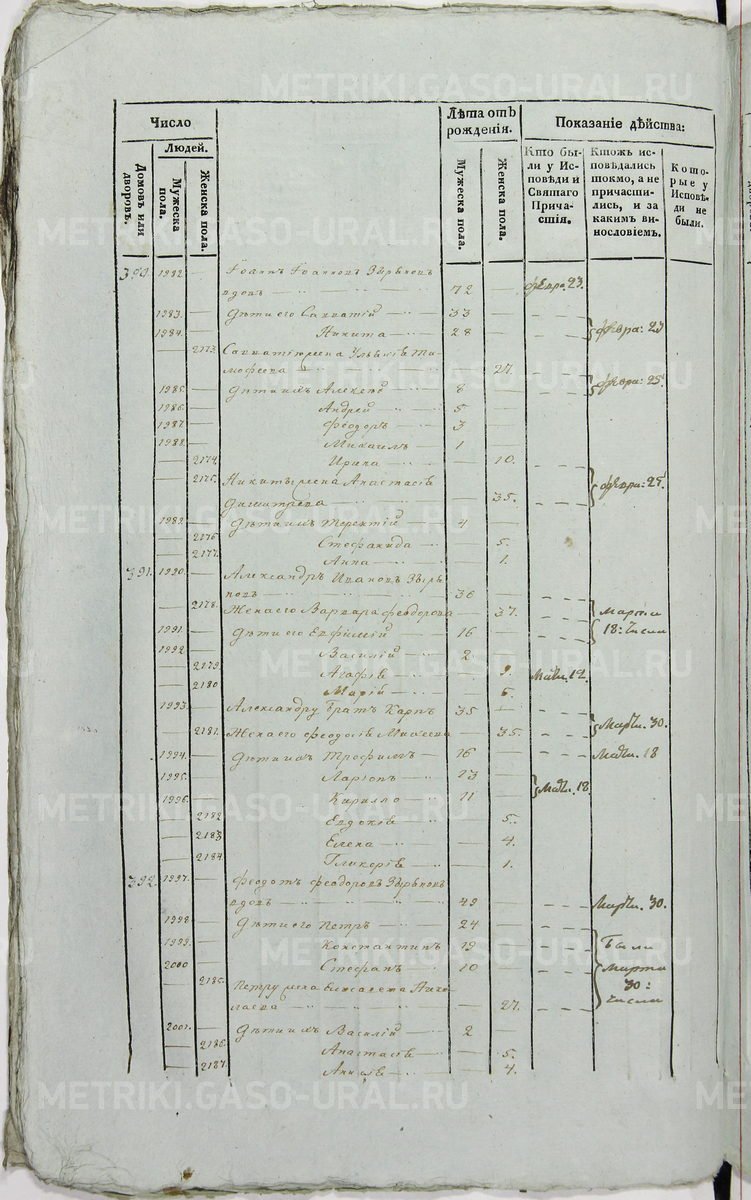 METRIKI.GASO-URAL.RU
Число
Лѣта отъ рожденія.
Показаніе дѣйства:
Людей.
Домовъ или дворовъ.
Мужеска пола.
Женска пола.
Мужеска пола.
Женска пола.
Кто были у Исповѣди и Святаго Причастія.
Ктожъ исповѣдались токмо, а не причастились, и за какимъ винословіемъ.
Которые у Исповѣди не были.
1982 — Іоаннъ Іоанновъ Зырѣновъ
вдовъ — 72 — февра. 23.
1983. — Дѣти его Савватій — 33 —
1984. — Никита — 28 — февра: 23
— 2173. Савватія жена Ульянія Ти-
мофеева — 27.
1985. — Дѣти ихъ Алексѣй — 8 — февра: 25.
1986. — Андрей — 5 —
1987. — Феодоръ — 3 —
1988. — Михаилъ — 1 —
— 2174. Ирина — 10.
— 2175. Никиты жена Анастасія — февра: 25.
Димитріева — 35.
1989. — Дѣти ихъ Терентій — 4 —
— 2176 Стефанида — 5.
— 2177. Анна — 1.
391. 1990. — Александръ Ивановъ Зырѣ-
новъ — 36 —
— 2178. Жена его Варвара Феодорова — 37. Марта
1991. — Дѣти его Евфимій — 16 — 18: числа
1992. — Василій — 2 —
— 2179. Агафія — 9. Мар. 12.
— 2180 Марія — 6.
1993. — Александру братъ Карпъ 35 —
— 2181. Жена его Феодосія Михеева — 35. Март. 30.
1994. — Дѣти ихъ Трофимъ — 16 — Мар. 18
1995. — Ларіонъ — 13 —
1996. — Кирилло — 11 — Мар. 18.
— 2182 Евдокія — 5.
— 2183 Елена — 4.
— 2184. Гликерія — 1.
392. 1997. — Феодотъ Феодоровъ Зырѣновъ
вдовъ — 49 — Март. 30.
1998. — Дѣти его Петръ — 24 —
1999. — Константинъ 19 — были
2000 — Стефанъ — 10 — Марта
— 2185. Петру жена Елизавета Нико- 30:
лаева — 27. числа
2001. — Дѣти ихъ Василій — 2 —
— 2186. Анастасія — 5.
— 2187. — 4.